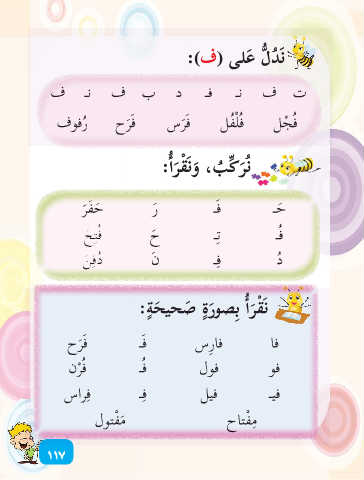 نَدُلُّ عَلى (ف):
ت ف نـ فـ د ب ف نـ ف
فُجْل فُلْفُل فَرَس فَرَح رُفوف
نُرَكِّبُ، وَنَقْرَأُ:
حَـ فَـ رَ حَفَرَ
فُـ تِـ حَ فُتِحَ
دُ فِـ نَ دُفِنَ
نَقْرَأُ بِصورَةٍ صَحيحَةٍ:
فا فارِس فَـ فَرَح
فو فول فُـ فُرْن
فيـ فيل فِـ فِراس
مِفْتاح مَفْتول
١١٧